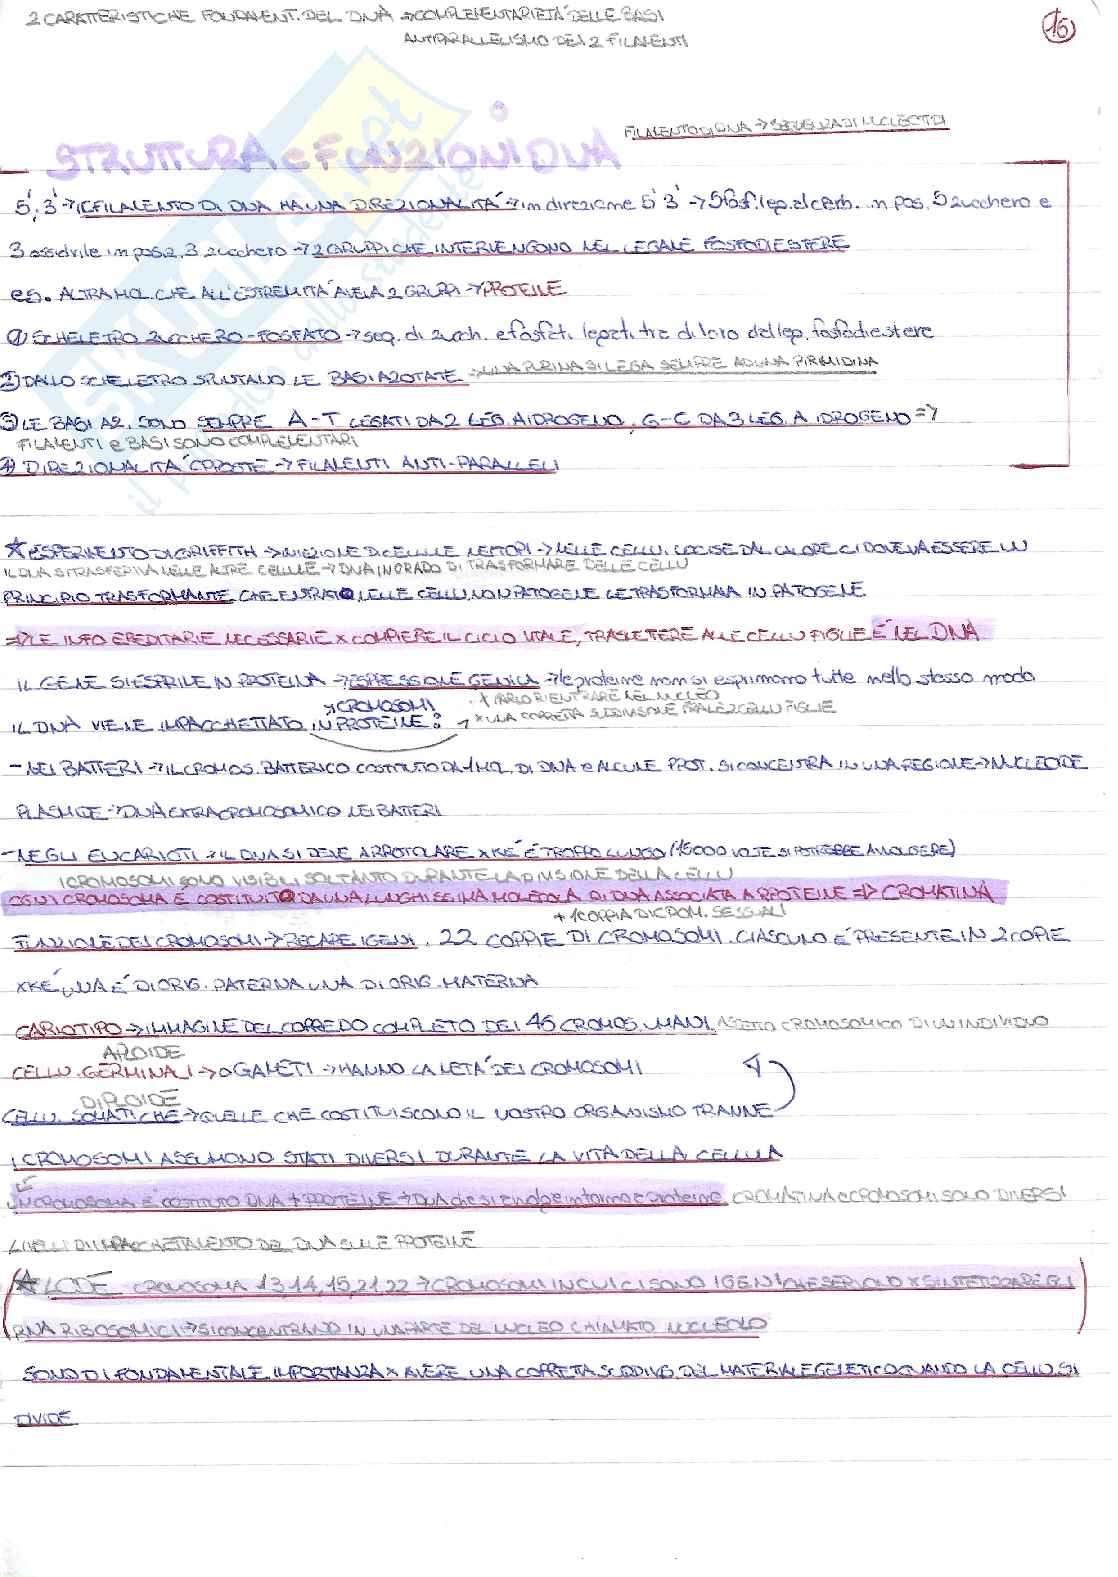 2 CARATTERISTICHE FONDAMENT. DEL DNA → COMPLEMENTARIETÀ DELLE BASI
ANTIPARALLELISMO DEI 2 FILAMENTI
16
FILAMENTO DI DNA → SEQUENZA DI NUCLEOTIDI
STRUTTURA e FUNZIONI DNA
5', 3' → IL FILAMENTO DI DNA HA UNA DIREZIONALITÀ → in direzione 5' 3' → 5 fosf. leg. al carb. in pos. 5 zucchero e
3 ossidrile in pos. 3 zucchero → 2 GRUPPI CHE INTERVENGONO NEL LEGAME FOSFODIESTERE
es. ALTRA MOL. CHE ALL'ESTREMITÀ AVEVA 2 GRUPPI → PROTEINE
1) SCHELETRO ZUCCHERO-FOSFATO → seq. di zucch. e fosfati legati tra di loro dal leg. fosfodiestere
2) DALLO SCHELETRO SPUNTANO LE BASI AZOTATE → UNA PURINA SI LEGA SEMPRE AD UNA PIRIMIDINA
3) LE BASI AZ. SONO SEMPRE A-T LEGATI DA 2 LEG. A IDROGENO, G-C DA 3 LEG. A IDROGENO =>
FILAMENTI e BASI SONO COMPLEMENTARI
4) DIREZIONALITÀ OPPOSTE → FILAMENTI ANTI-PARALLELI
* ESPERIMENTO DI GRIFFITH → INIEZIONE DI CELLULE NEI TOPI → NELLE CELLU. UCCISE DAL CALORE CI DOVEVA ESSERE UN
IL DNA SI TRASFERIVA NELLE ALTRE CELLULE → DNA IN GRADO DI TRASFORMARE DELLE CELLU
PRINCIPIO TRASFORMANTE CHE ENTRATO NELLE CELLU. NON PATOGENE LE TRASFORMAVA IN PATOGENE
=> LE INFO EREDITARIE NECESSARIE x COMPIERE IL CICLO VITALE, TRASMETTERE ALLE CELLU FIGLIE È NEL DNA
IL GENE SI ESPRIME IN PROTEINA → ESPRESSIONE GENICA → le proteine non si esprimono tutte nello stesso modo
→ CROMOSOMI · x FARLO RIENTRARE NEL NUCLEO
IL DNA VIENE IMPACCHETTATO IN PROTEINE: x UNA CORRETTA SUDDIVISIONE FRA LE 2 CELLU FIGLIE
- NEI BATTERI → IL CROMOS. BATTERICO COSTITUITO DA 1 MOL. DI DNA e ALCUNE PROT. SI CONCENTRA IN UNA REGIONE → NUCLEOIDE
PLASMIDE → DNA EXTRACROMOSOMICO NEI BATTERI
- NEGLI EUCARIOTI → IL DNA SI DEVE ARROTOLARE XKÈ È TROPPO LUNGO (15000 VOLTE SI POTREBBE AVVOLGERE)
I CROMOSOMI SONO VISIBILI SOLTANTO DURANTE LA DIVISIONE DELLA CELLU
OGNI CROMOSOMA È COSTITUITO DA UNA LUNGHISSIMA MOLECOLA DI DNA ASSOCIATA A PROTEINE => CROMATINA
+ 1 COPPIA DI CROM. SESSUALI
FUNZIONE DEI CROMOSOMI → RECARE I GENI. 22 COPPIE DI CROMOSOMI. CIASCUNO È PRESENTE IN 2 COPIE
XKÈ UNA È DI ORIG. PATERNA UNA DI ORIG. MATERNA
CARIOTIPO → IMMAGINE DEL CORREDO COMPLETO DEI 46 CROMOS. UMANI, ASSETTO CROMOSOMICO DI UN INDIVIDUO
APLOIDE
CELLU. GERMINALI → o GAMETI → HANNO LA METÀ DEI CROMOSOMI
DIPLOIDE
CELLU. SOMATICHE → QUELLE CHE COSTITUISCONO IL NOSTRO ORGANISMO TRANNE
I CROMOSOMI ASSUMONO STATI DIVERSI DURANTE LA VITA DELLA CELLULA
UN CROMOSOMA È COSTITUITO DNA + PROTEINE → DNA che si avvolge intorno a proteine, CROMATINA e CROMOSOMI SONO DIVERSI
LIVELLI DI IMPACCHETTAMENTO DEL DNA SULLE PROTEINE
(* LODE CROMOSOMA 13, 14, 15, 21, 22 → CROMOSOMI IN CUI CI SONO I GENI CHE SERVONO x SINTETIZZARE GLI
RNA RIBOSOMICI → SI CONCENTRANO IN UNA PARTE DEL NUCLEO CHIAMATO NUCLEOLO)
SONO DI FONDAMENTALE IMPORTANZA x AVERE UNA CORRETTA SUDDIVIS. DEL MATERIALE GENETICO QUANDO LA CELLU. SI
DIVIDE